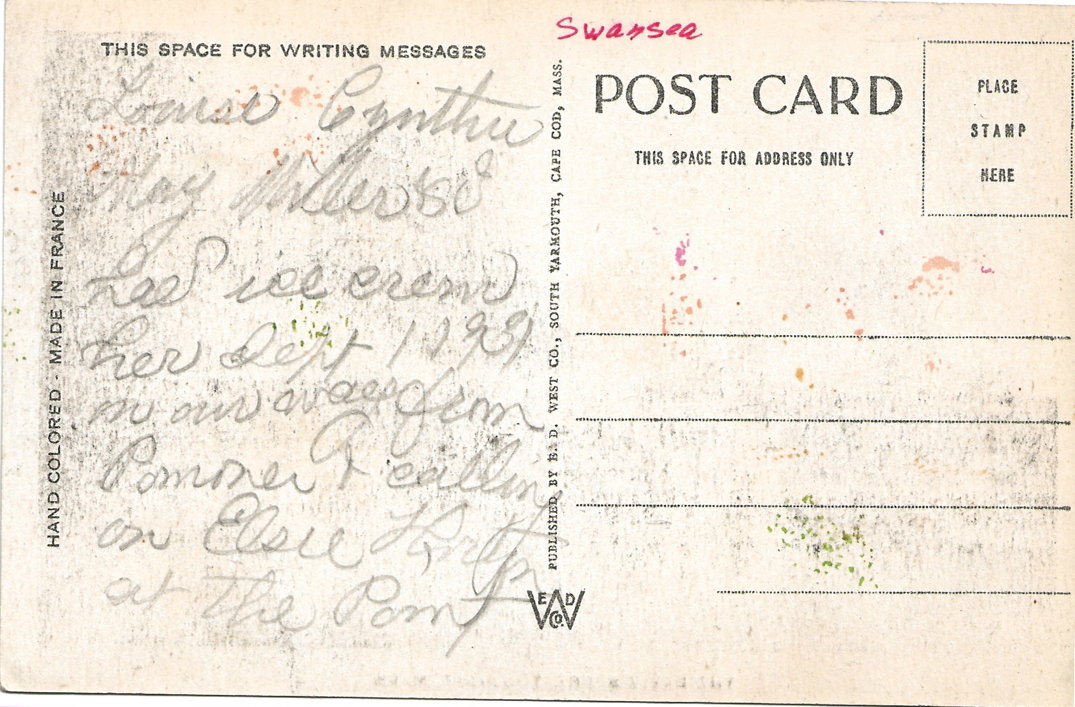 Swansea
THIS SPACE FOR WRITING MESSAGES
POST CARD
THIS SPACE FOR ADDRESS ONLY
PLACE
STAMP
HERE
Louise Cynthia
May Miller & I
had ice crem
her Sept 1 1931
on our way from
Pomoner & calling
on Elsie
at the Point
HAND COLORED - MADE IN FRANCE
PUBLISHED BY E. D. WEST CO., SOUTH YARMOUTH, CAPE COD, MASS.
E D W Co.